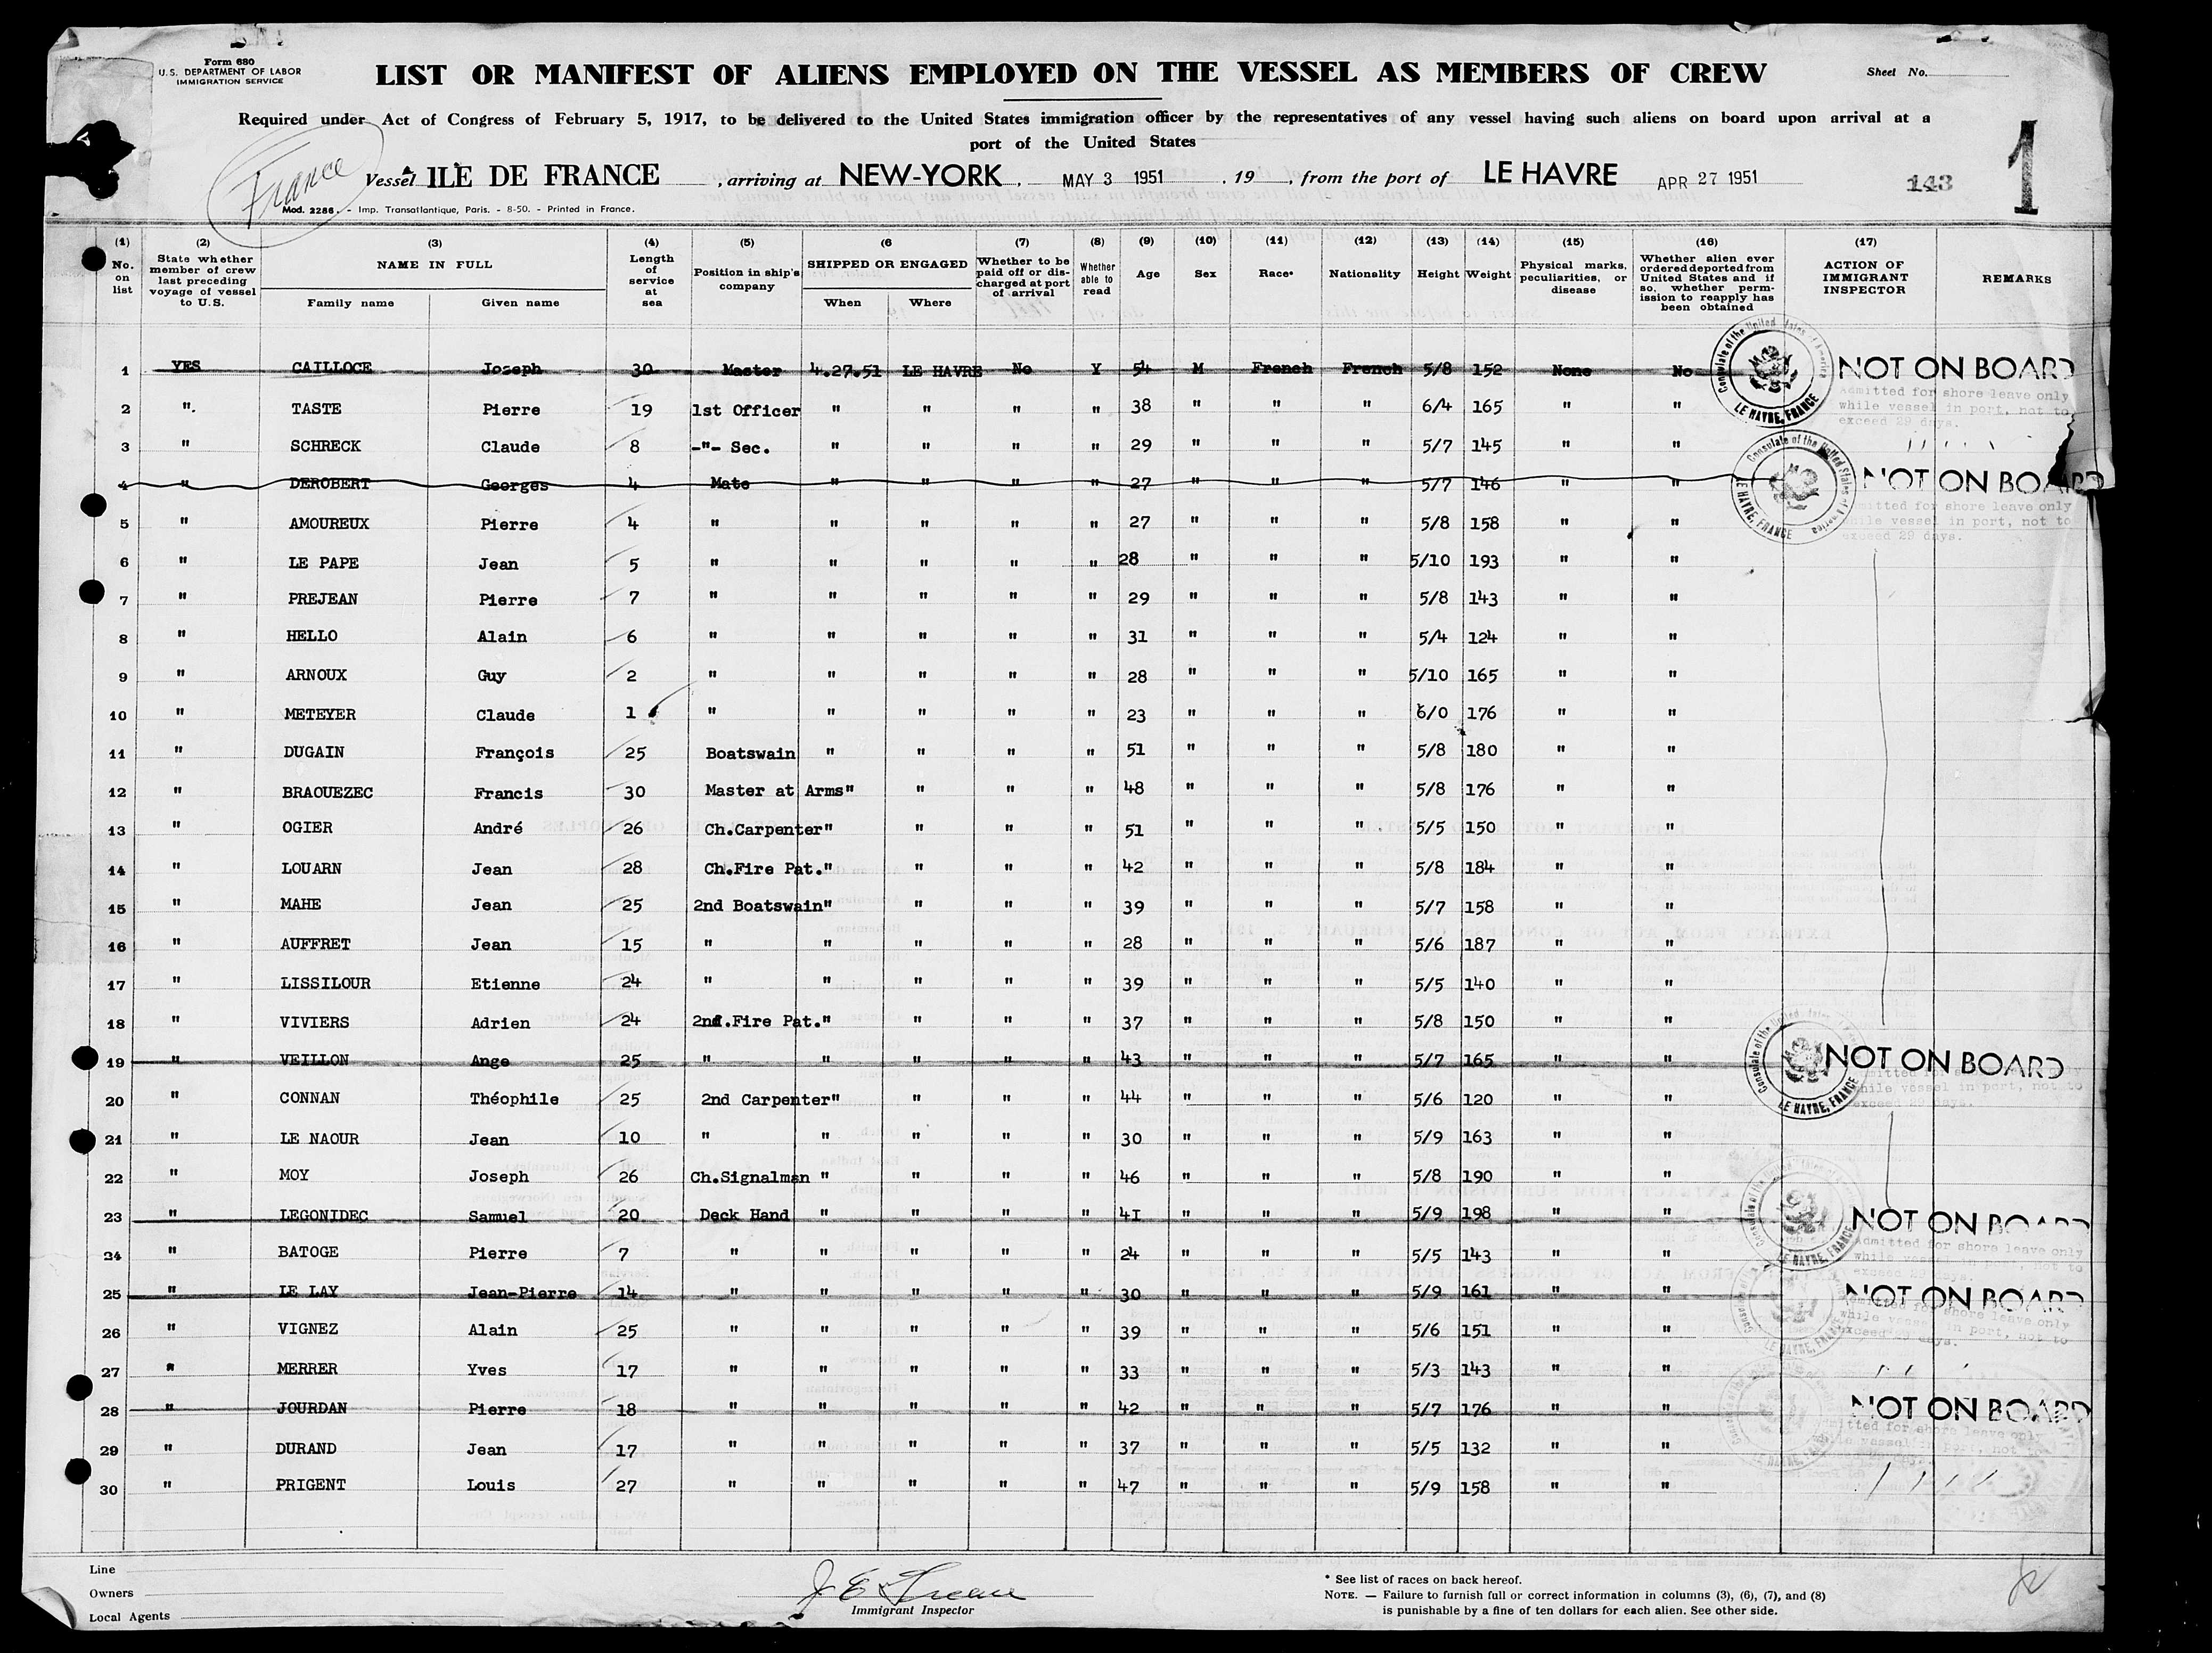 Form 680
U.S. DEPARTMENT OF LABOR
IMMIGRATION SERVICE
LIST OR MANIFEST OF ALIENS EMPLOYED ON THE VESSEL AS MEMBERS OF CREW
Sheet No.
Required under Act of Congress of February 5, 1917, to be delivered to the United States immigration officer by the representatives of any vessel having such aliens on board upon arrival at a
port of the United States
France
Vessel ILE DE FRANCE , arriving at NEW-YORK , MAY 3 1951 , 19 , from the port of LE HAVRE APR 27 1951
143
1
Mod. 2286. - Imp. Transatlantique, Paris. - 8-50. - Printed in France.
(1) No. on list (2) State whether member of crew last preceding voyage of vessel to U.S. (3) NAME IN FULL Family name Given name (4) Length of service at sea (5) Position in ship's company (6 SHIPPED OR ENGAGED When Where (7) Whether to be paid off or discharged at port of arrival (8) Whether able to read (9) Age (10) Sex (11) Race* (12) Nationality (13) Height (14) Weight (15) Physical marks, peculiarities, or disease (16) Whether alien ever ordered deported from United States and if so, whether permission to reapply has been obtained (17) ACTION OF IMMIGRANT INSPECTOR REMARKS
1 YES CAILLOCE Joseph 30 Master 4.27.51 LE HAVRE No Y 54 M French French 5/8 152 None No NOT ON BOARD
Consulate of the United States of America LE HAVRE, FRANCE
Admitted for shore leave only
while vessel in port, not to
exceed 29 days.
2 ". TASTE Pierre 19 1st Officer " " " " 38 " " " 6/4 165 " "
3 " SCHRECK Claude 8 -"- Sec. " " " " 29 " " " 5/7 145 " "
4 " DEROBERT Georges 4 Mate " " " " 27 " " " 5/7 146 " " NOT ON BOARD
Consulate of the United States of America LE HAVRE, FRANCE
Admitted for shore leave only
while vessel in port, not to
exceed 29 days.
5 " AMOUREUX Pierre 4 " " " " " 27 " " " 5/8 158 " "
6 " LE PAPE Jean 5 " " " " " 28 " " " 5/10 193 " "
7 " PREJEAN Pierre 7 " " " " " 29 " " " 5/8 143 " "
8 " HELLO Alain 6 " " " " " 31 " " " 5/4 124 " "
9 " ARNOUX Guy 2 " " " " " 28 " " " 5/10 165 " "
10 " METEYER Claude 1 " " " " " 23 " " " 6/0 176 " "
11 " DUGAIN François 25 Boatswain " " " " 51 " " " 5/8 180 " "
12 " BRAOUEZEC Francis 30 Master at Arms" " " " 48 " " " 5/8 176 " "
13 " OGIER André 26 Ch.Carpenter" " " " 51 " " " 5/5 150 " "
14 " LOUARN Jean 28 Ch.Fire Pat." " " " 42 " " " 5/8 184 " "
15 " MAHE Jean 25 2nd Boatswain" " " " 39 " " " 5/7 158 " "
16 " AUFFRET Jean 15 " " " " " 28 " " " 5/6 187 " "
17 " LISSILOUR Etienne 24 " " " " " 39 " " " 5/5 140 " "
18 " VIVIERS Adrien 24 2nd.Fire Pat." " " " 37 " " " 5/8 150 " "
19 " VEILLON Ange 25 " " " " " 43 " " " 5/7 165 " " NOT ON BOARD
Consulate of the United States of America LE HAVRE, FRANCE
while vessel in port, not to
exceed 29 days.
20 " CONNAN Théophile 25 2nd Carpenter" " " " 44 " " " 5/6 120 " "
21 " LE NAOUR Jean 10 " " " " " 30 " " " 5/9 163 " "
22 " MOY Joseph 26 Ch.Signalman " " " " 46 " " " 5/8 190 " "
23 " LEGONIDEC Samuel 20 Deck Hand " " " " 4I " " " 5/9 198 " " NOT ON BOARD
LE HAVRE, FRANCE
Admitted for shore leave only
while vessel in port, not to
exceed 29 days.
24 " BATOGE Pierre 7 " " " " " 24 " " " 5/5 143 " "
25 " LE LAY Jean-Pierre 14 " " " " " 30 " " " 5/9 161 " " NOT ON BOARD
Admitted for shore leave only
while vessel in port, not to
exceed 29 days.
26 " VIGNEZ Alain 25 " " " " " 39 " " " 5/6 151 " "
27 " MERRER Yves 17 " " " " " 33 " " " 5/3 143 " "
28 " JOURDAN Pierre 18 " " " " " 42 " " " 5/7 176 " " NOT ON BOARD
Admitted for shore leave only
29 " DURAND Jean 17 " " " " " 37 " " " 5/5 132 " "
30 " PRIGENT Louis 27 " " " " " 47 " " " 5/9 158 " "
Line
Owners
Local Agents
Immigrant Inspector
* See list of races on back hereof.
NOTE. — Failure to furnish full or correct information in columns (3), (6), (7), and (8)
is punishable by a fine of ten dollars for each alien. See other side.